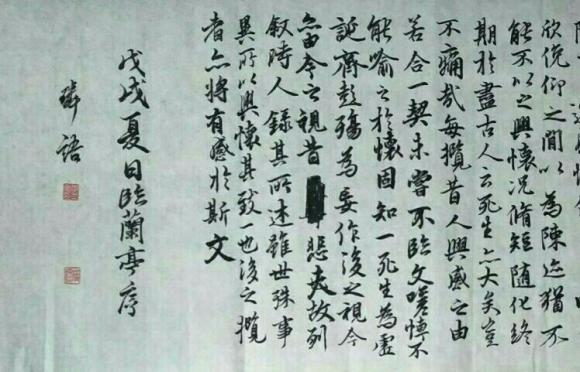 欣俛仰之間以為陳迹猶不
能不以之興懷況脩短隨化終
期於盡古人云死生亦大矣豈
不痛哉每攬昔人興感之由
若合一契未嘗不臨文嗟悼不
能喻之於懷固知一死生為虛
誕齊彭殤為妄作後之視今
亦由今之視昔悲夫故列
叙時人錄其所述雖世殊事
異所以興懷其致一也後之攬
者亦將有感於斯文
戊戌夏日臨蘭亭序
語